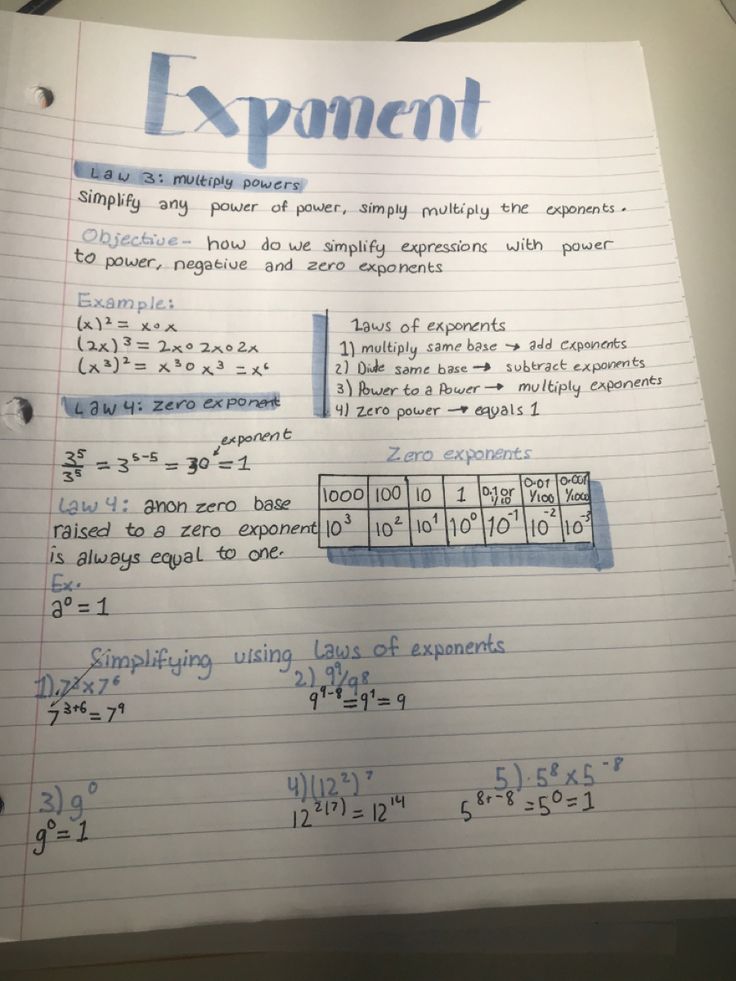 Exponent
Law 3: multiply powers
Simplify any power of power, simply multiply the exponents.
Objective- how do we simplify expressions with power
to power, negative and zero exponents
Example:
(x)² = x∘x
(2x)³ = 2x∘2x∘2x
(x³)² = x³∘x³ = x⁶
Laws of exponents
1) multiply same base → add exponents
2) Divide same base → subtract exponents
3) Power to a Power → multiply exponents
4) zero power → equals 1
Law 4: zero exponent
exponent
3⁵/3⁵ = 3⁵⁻⁵ = 30 = 1
Law 4: a non zero base
raised to a zero exponent
is always equal to one.
Ex.
a⁰ = 1
Zero exponents
1000 100 10 1 0.1 or 1/10 0.01 1/100 0.001 1/1000
10³ 10² 10¹ 10⁰ 10⁻¹ 10⁻² 10⁻³
Simplifying using Laws of exponents
1) 7³x7⁶
7³⁺⁶ = 7⁹
2) 9⁹/98
9⁹⁻⁸ = 9¹ = 9
3) g⁰
g⁰ = 1
4) (12²)⁷
12²⁽⁷⁾ = 12¹⁴
5) · 5⁸ x 5⁻⁸
5⁸⁺⁻⁸ = 5⁰ = 1